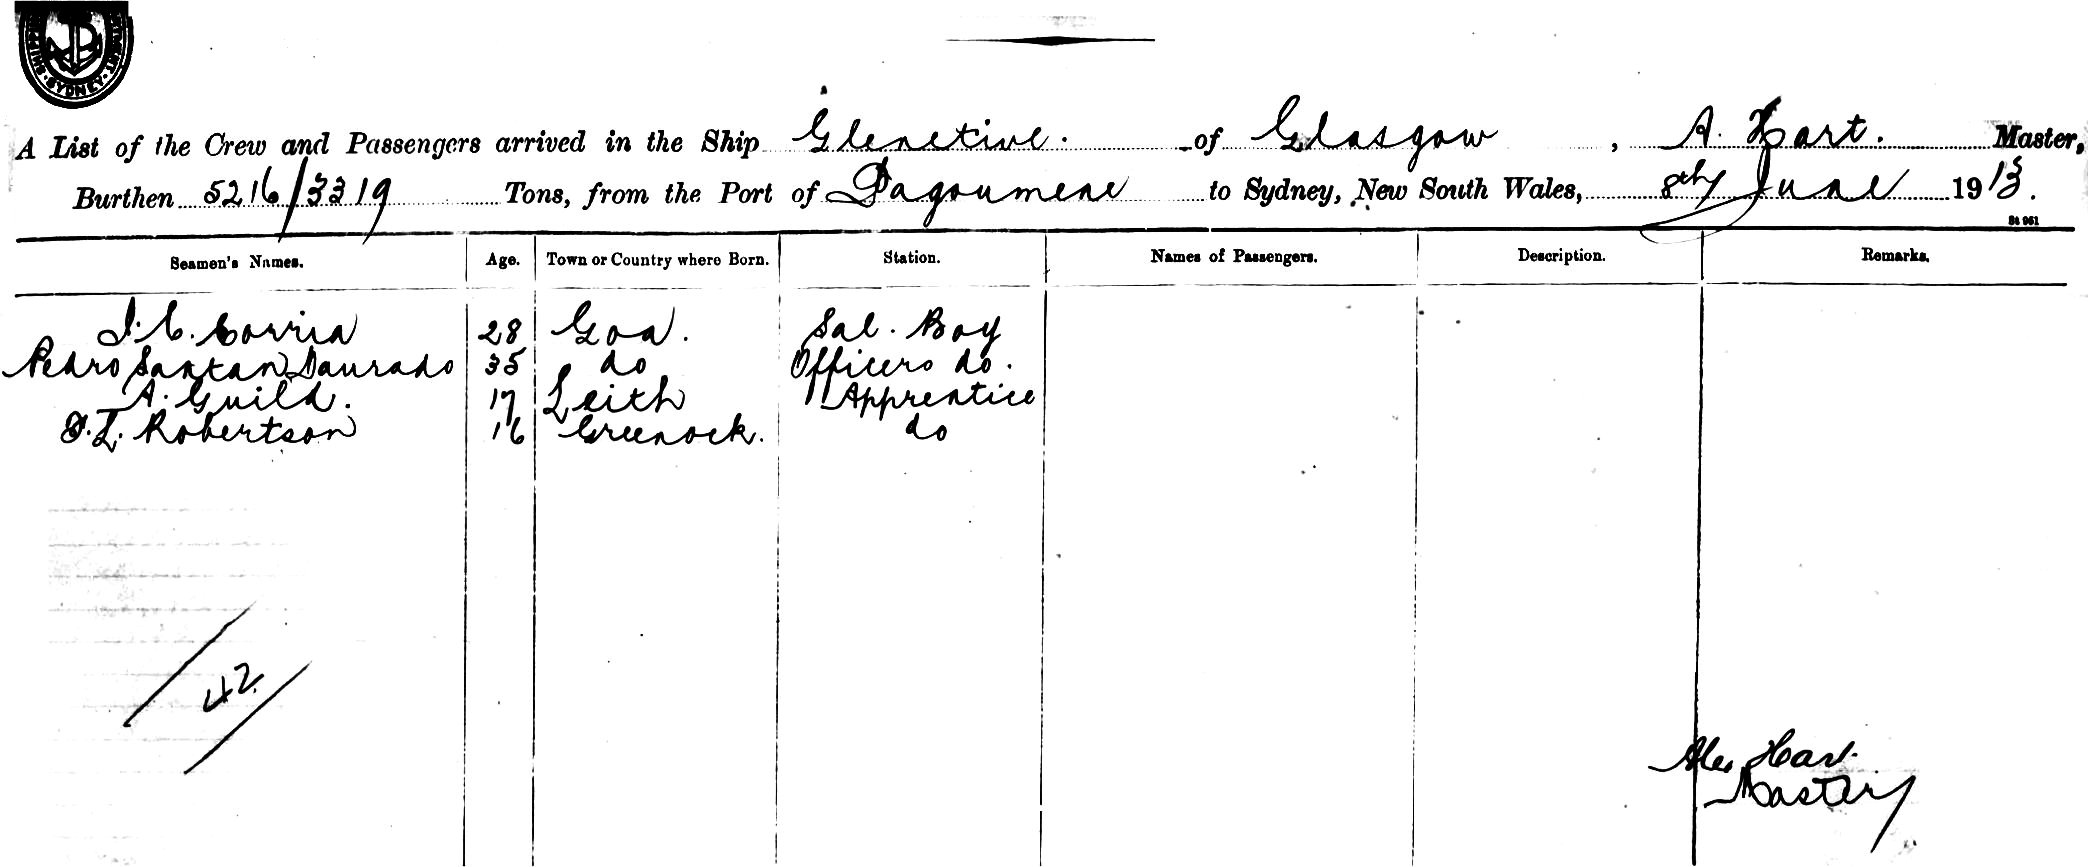 SYDNEY
A List of the Crew and Passengers arrived in the Ship Glenetive. of Glasgow, A. Hart. Master,
Burthen 5216/3319 Tons, from the Port of Pagoumene to Sydney, New South Wales, 8th June 1913.
St 961
Seamen's Names. Age. Town or Country where Born. Station. Names of Passengers. Description. Remarks.
J. C. Corria 28 Goa. Sal. Boy
Pedro Santan Daurado 35 do Officers do.
A. Guild. 17 Leith Apprentice
L. Robertson 16 Greenock. do
42
Alex Hart.
Master